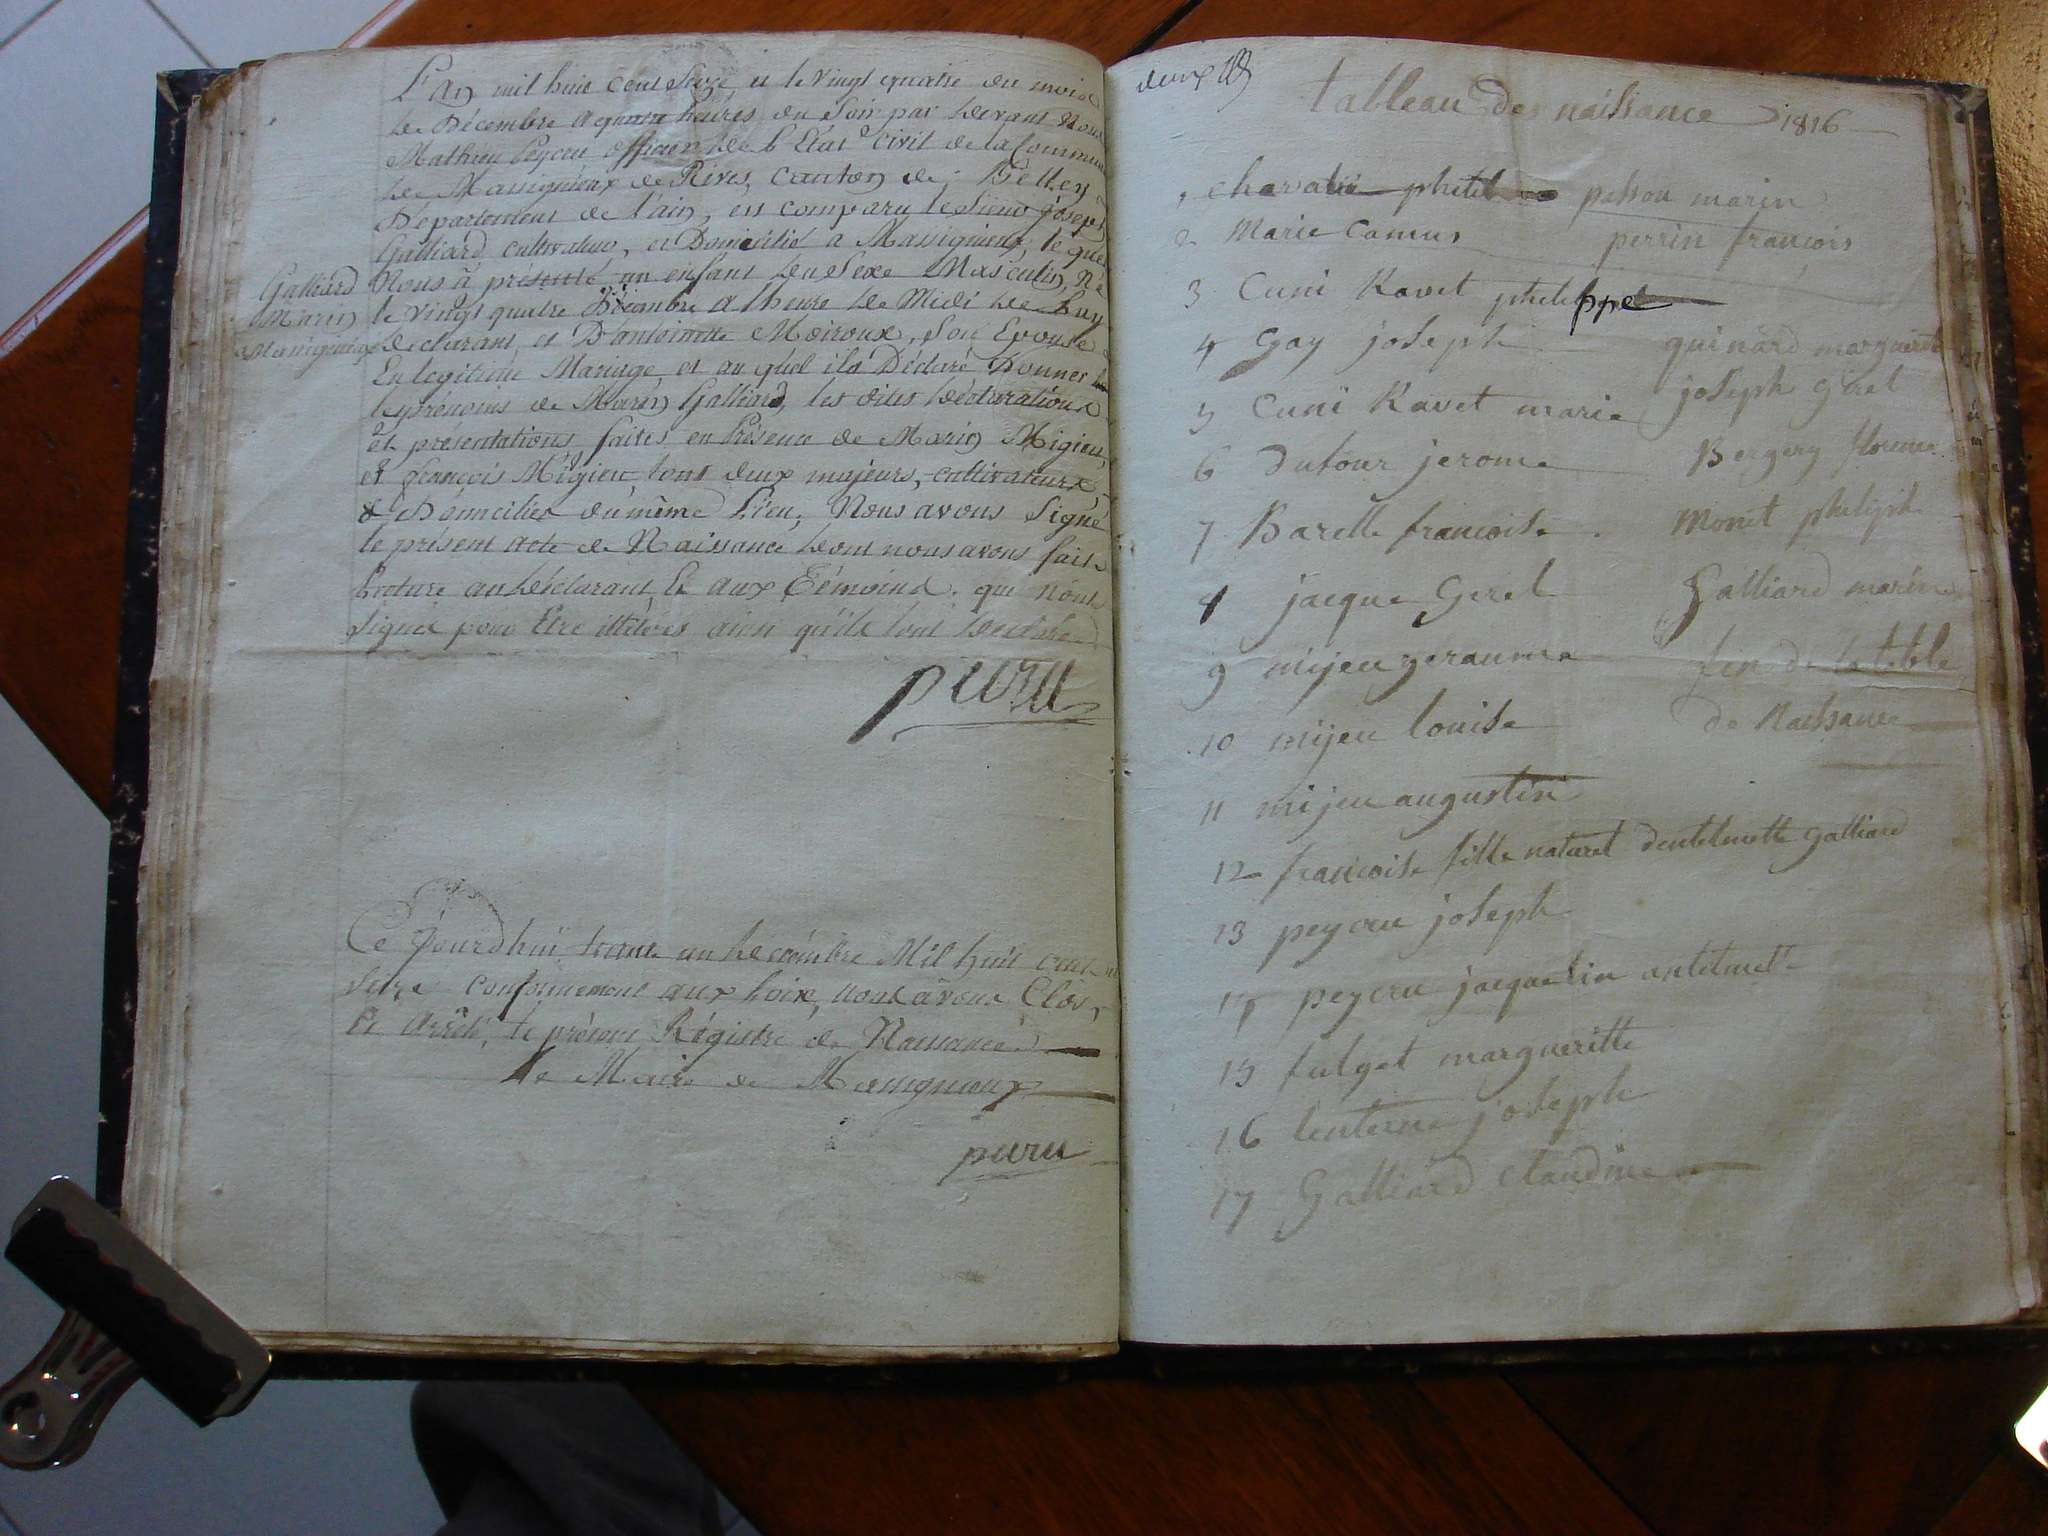 L'an mil huit cent Seize, et le vingt quatre du mois
de Décembre a quatre heures du Soir par devant Nous
Mathieu Peycru officier de l'Etat civil de la Commune
de Massignieux de Rives, canton de Belley
Département de l'ain, est comparu le Sieur joseph
Galliard cultivateur, et Domicilié a Massignieux, le quel
Nous à présenté un enfant du Sexe Masculin, Né
le vingt quatre Décembre a l'heure de Midi de luy
declarant, et D'antoinette Moiroux, Son Epouse
En legitime Mariage et au quel il a Déclaré Donner
le prénoms de Marin Galliard, les dites déclarations
et présentations faites en Présence de Marin Migieu,
et françois Migieu, tous deux majeurs, cultivateurs,
& Domiciliés du même Lieu, Nous avons Signé
le présent acte de Naissance dont nous avons fait
Lecture au déclarant Et aux Témoins. qui n'ont
Signés pour Etre illétérés ainsi qu'ils l'ont déclaré
Galliard
Marin
Massignieux
peycru
Ce Jourd'hui trente un decembre Mil huit cent
Seize conformement aux Loix, nous avons Clos,
Et Arrêté, le présent Régistre de Naissance
Le Maire de Massignieux
peycru
deux
tableau de naissance 1816
1 chavalié philibe
2 Marie Camus
3 Cuni Ravet philibppe
4 Gay joseph
5 Cuni Ravet marie
6 Dufour jerome
7 Barelle francoise
8 jacque Gerel
9 mijeu geraume
10 mijeu louise
11 mijeu augustin
12 francoise fille naturel dentelmette galliard
13 peycru joseph
14 peycru jacqueline antelmette
15 fulget margueritte
16 lenterne joseph
17 Galliard claudine
passou marin
perrin francois
guinard marguerite
joseph Girel
Bergery florine
Monet pheliph
Galliard marin
fin de la table
de Naissance